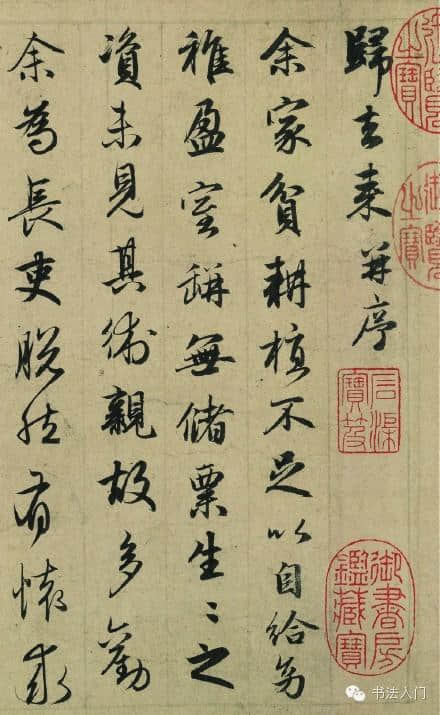 歸去来并序
余家貧耕植不足以自給幼
稚盈室缾無儲粟生〻之
資未見其術親故多勸
余為長吏脫然有懷求
御覽之寶
石渠寶笈
御書房鑑藏寶
书法入门